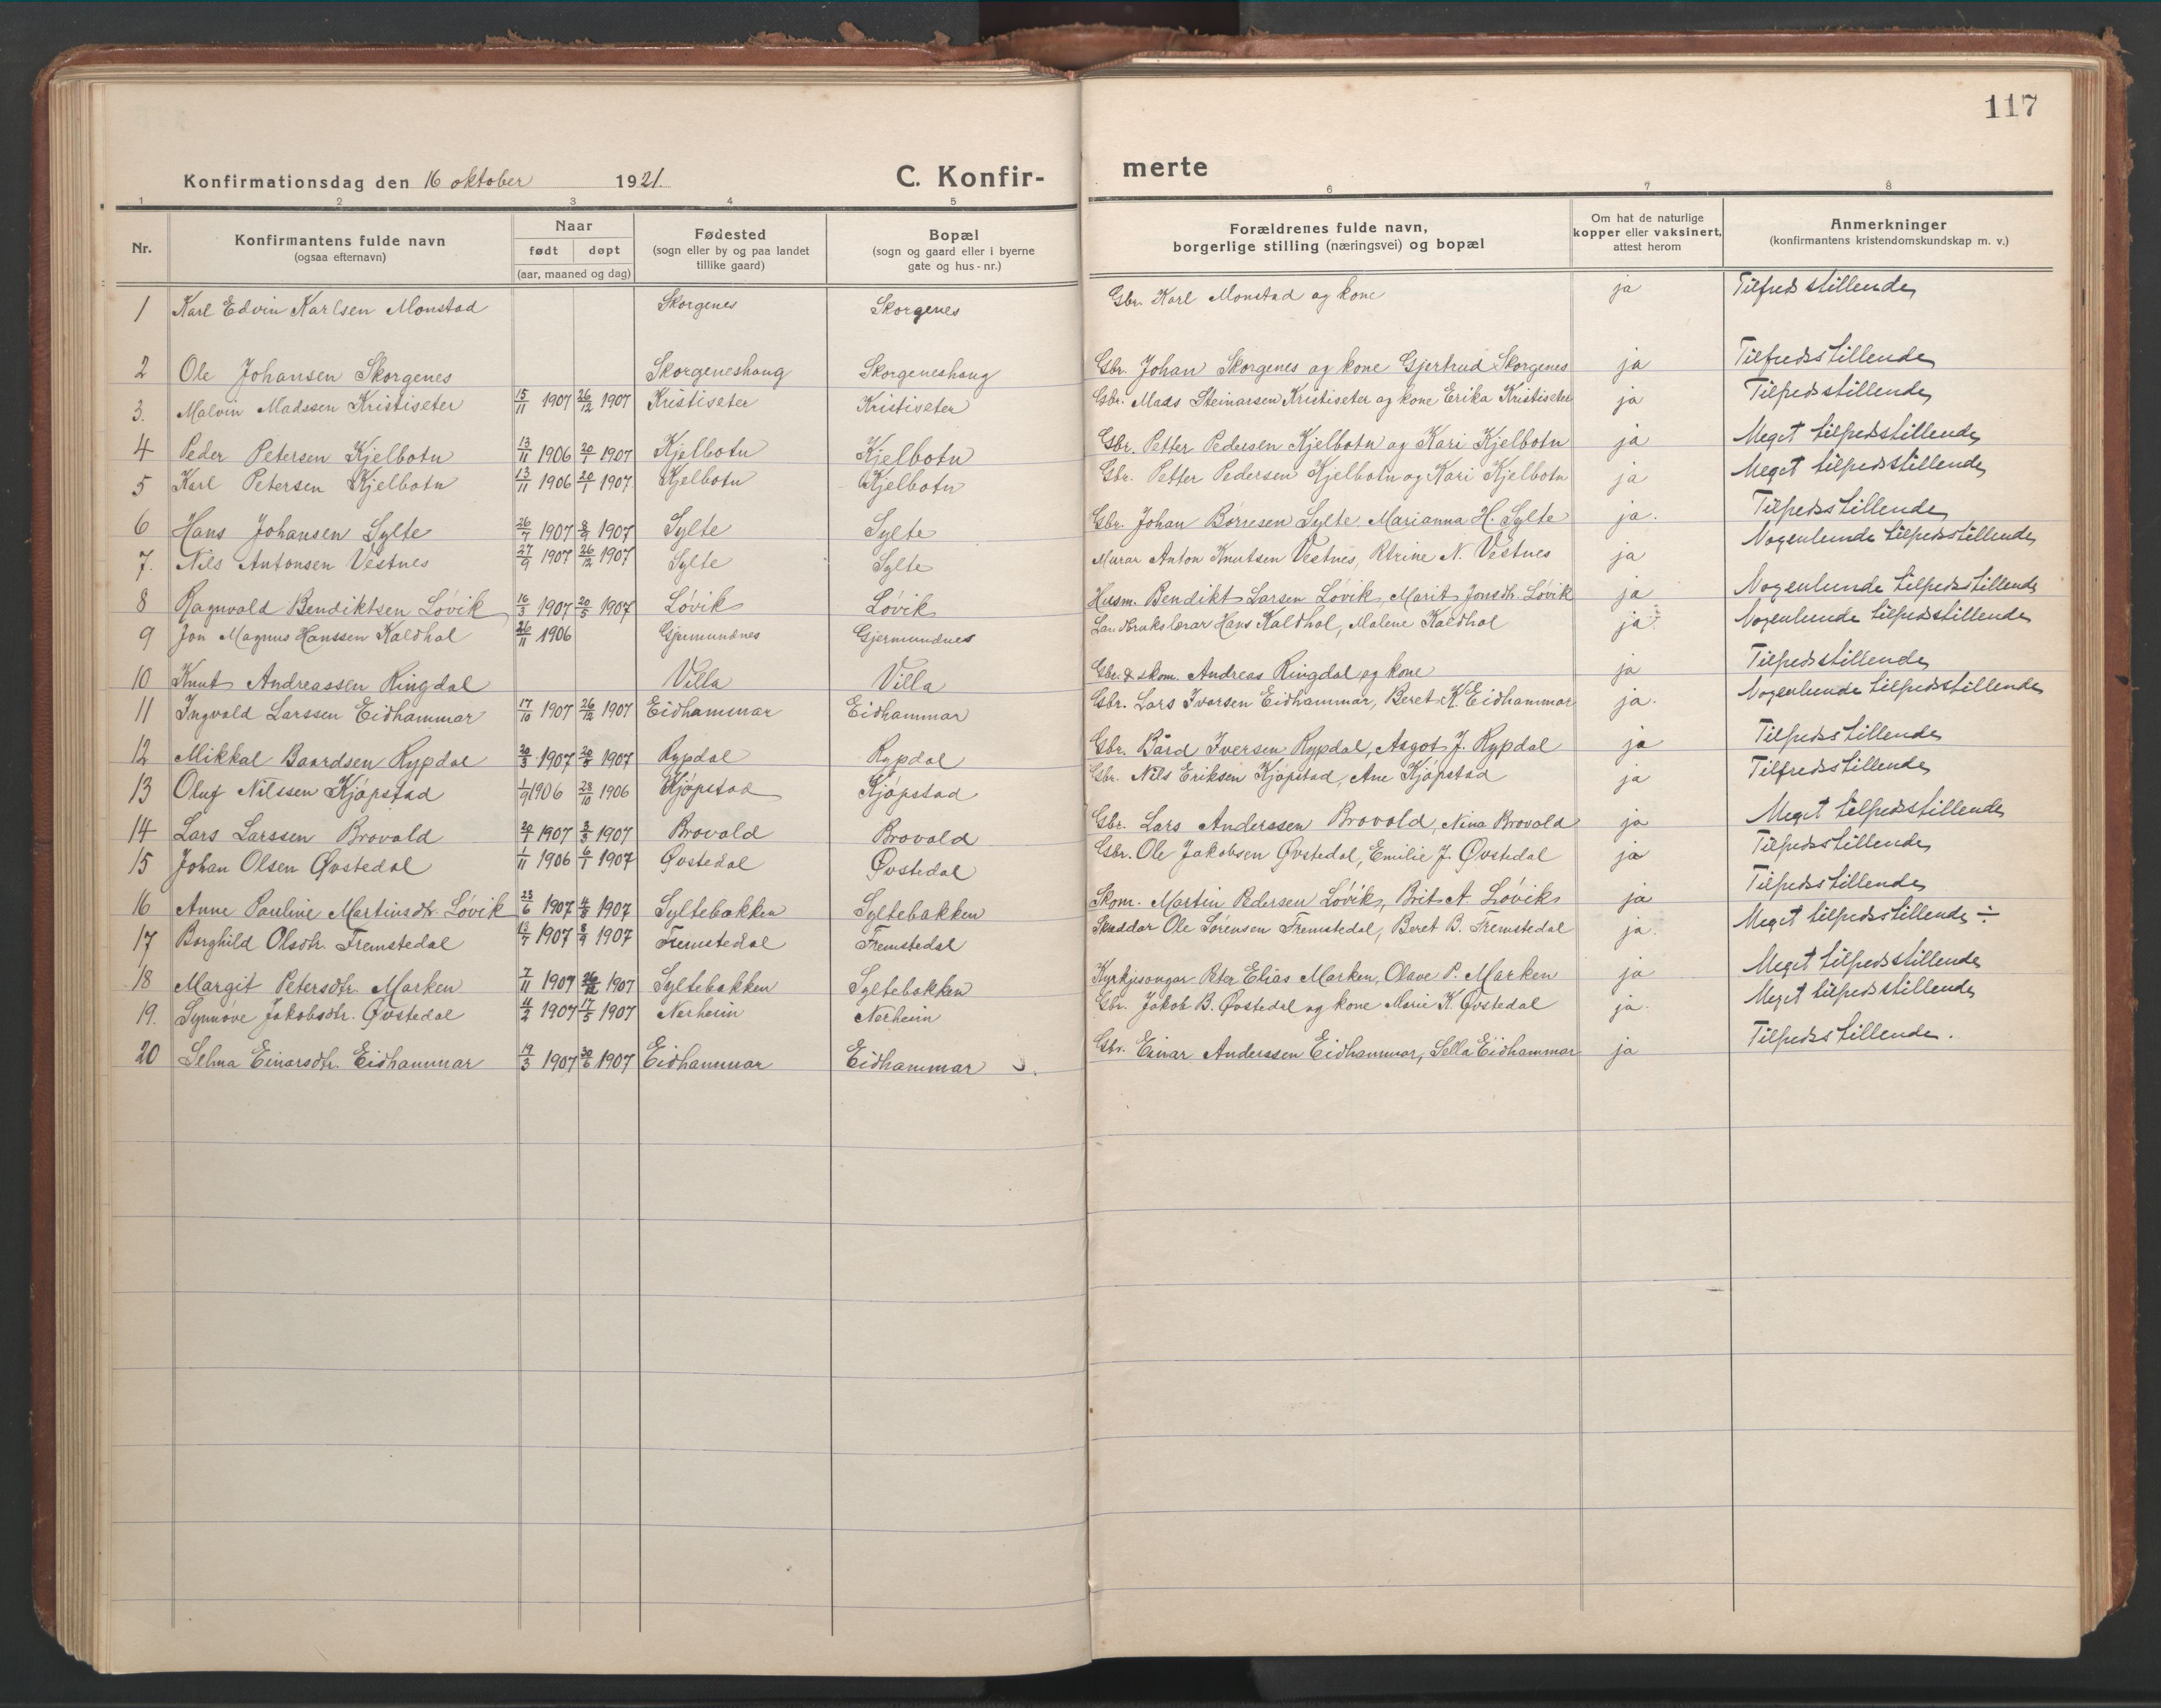 117
Konfirmationsdag den 16 oktober 1921. C. Konfirmerte
1 2 3 4 5 6 7 8
Nr. Konfirmantens fulde navn (ogsaa efternavn) Naar født døpt (aar, maaned og dag) Fødested (sogn eller by og paa landet tillike gaard) Bopæl (sogn og gaard eller i byerne gate og hus-nr.) Forældrenes fulde navn, borgerlige stilling (næringsvei) og bopæl Om hat de naturlige kopper eller vaksinert, attest herom Anmerkninger (konfirmantens kristendomskundskap m. v.)
1 Karl Edvin Karlsen Monstad Skorgenes Skorgenes Gbr. Karl Monstad og kone ja Tilfredsstillende
2 Ole Johansen Skorgenes Skorgeneshaug Skorgeneshaug Gbr. Johan Skorgenes og kone Gjertrud Skorgenes ja Tilfredsstillende
3. Malvin Madssen Kristiseter 15/11 1907 26/12 1907 Kristiseter Kristiseter Gbr. Mads Steinarsen Kristiseter og kone Erika Kristiseter ja Tilfredsstillende
4 Peder Petersen Kjelbotn 13/11 1906 20/1 1907 Kjelbotn Kjelbotn Gbr. Petter Pedersen Kjelbotn og Kari Kjelbotn ja Meget tilfredsstillende
5 Karl Petersen Kjelbotn 13/11 1906 20/1 1907 Kjelbotn Kjelbotn Gbr. Petter Pedersen Kjelbotn og Kari Kjelbotn ja Meget tilfredsstillende
6 Hans Johansen Sylte 26/7 1907 8/9 1907 Sylte Sylte Gbr. Johan Børresen Sylte Marianna H. Sylte ja. Tilfredsstillende
7. Nils Antonsen Vestnes 27/9 1907 26/12 1907 Sylte Sylte Murar Anton Knutsen Vestnes, N. Vestnes ja Nogenlunde tilfredsstillende
8 Ragnvald Bendiktsen Løvik 16/3 1907 20/5 1907 Løvik Løvik Husm. Bendikt Larsen Løvik, Marit Jonsdtr. Løvik ja Nogenlunde tilfredsstillende
9 Jon Magnus Hanssen Kaldhol 26/11 1906 Gjermundnes Gjermundnes Landbrukslærar Hans Kaldhol, Malene Kaldhol ja. Nogenlunde tilfredsstillende
10 Knut Andreassen Ringdal Villa Villa Gbr. & skom. Andreas Ringdal og kone ja Tilfredsstillende
11 Ingvald Larssen Eidhammar 17/10 1907 26/12 1907 Eidhammar Eidhammar Gbr. Lars Ivarsen Eidhammar, Beret K. Eidhammar ja. Nogenlunde tilfredsstillende
12 Mikkal Baardsen Rypdal 1907 1907 Rypdal Rypdal Gbr. Bård Iversen Rypdal, Aagot J. Rypdal ja Tilfredsstillende
13 Oluf Nilssen Kjøpstad 1/9 1906 28/10 1906 Kjøpstad Kjøpstad Gbr. Nils Eriksen Kjøpstad, Ane Kjøpstad ja Tilfredsstillende
14 Lars Larssen Brovold 1907 3/3 1907 Brovold Brovold Gbr. Lars Anderssen Brovold, Nina Brovold ja Meget tilfredsstillende
15 Johan Olsen Øvstedal 1/11 1906 6/1 1907 Øvstedal Øvstedal Gbr. Ole Jakobsen Øvstedal, Emilie J. Øvstedal ja Tilfredsstillende
16 Anne Pauline Martinsdtr. Løvik 23/6 1907 4/8 1907 Syltebakken Syltebakken Skom. Martin Pedersen Løvik, Brit A. Løvik ja Tilfredsstillende
17 Borghild Olsdtr. Fremstedal 13/7 1907 8/9 1907 Fremstedal Fremstedal Skreddar Ole Sørensen Fremstedal, Beret B. Fremstedal ja. Meget tilfredsstillende ÷
18 Margit Petersdtr. Marken 7/11 1907 26/12 1907 Syltebakken Syltebakken Kyrkjesongar Peter Elias Marken, Olave P. Marken ja Meget tilfredsstillende
19. Synnøve Jakobsdtr. Øvstedal 11/2 1907 17/5 1907 Nerheim Nerheim Gbr. Jakob B. Øvstedal og kone Marie K. Øvstedal ja. Meget tilfredsstillende
20 Selma Einarsdtr. Eidhammar 19/3 1907 30/6 1907 Eidhammar Eidhammar Gbr. Einar Anderssen Eidhammar, Sella Eidhammar ja Tilfredsstillende.